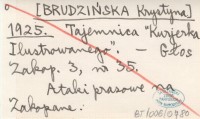 [BRUDZIŃSKA Krystyna]
1925. Tajemnica "Kurjerka
Ilustrowanego". - Głos
Zakop. 3, nr 35.
Ataki prasowe na
Zakopane.